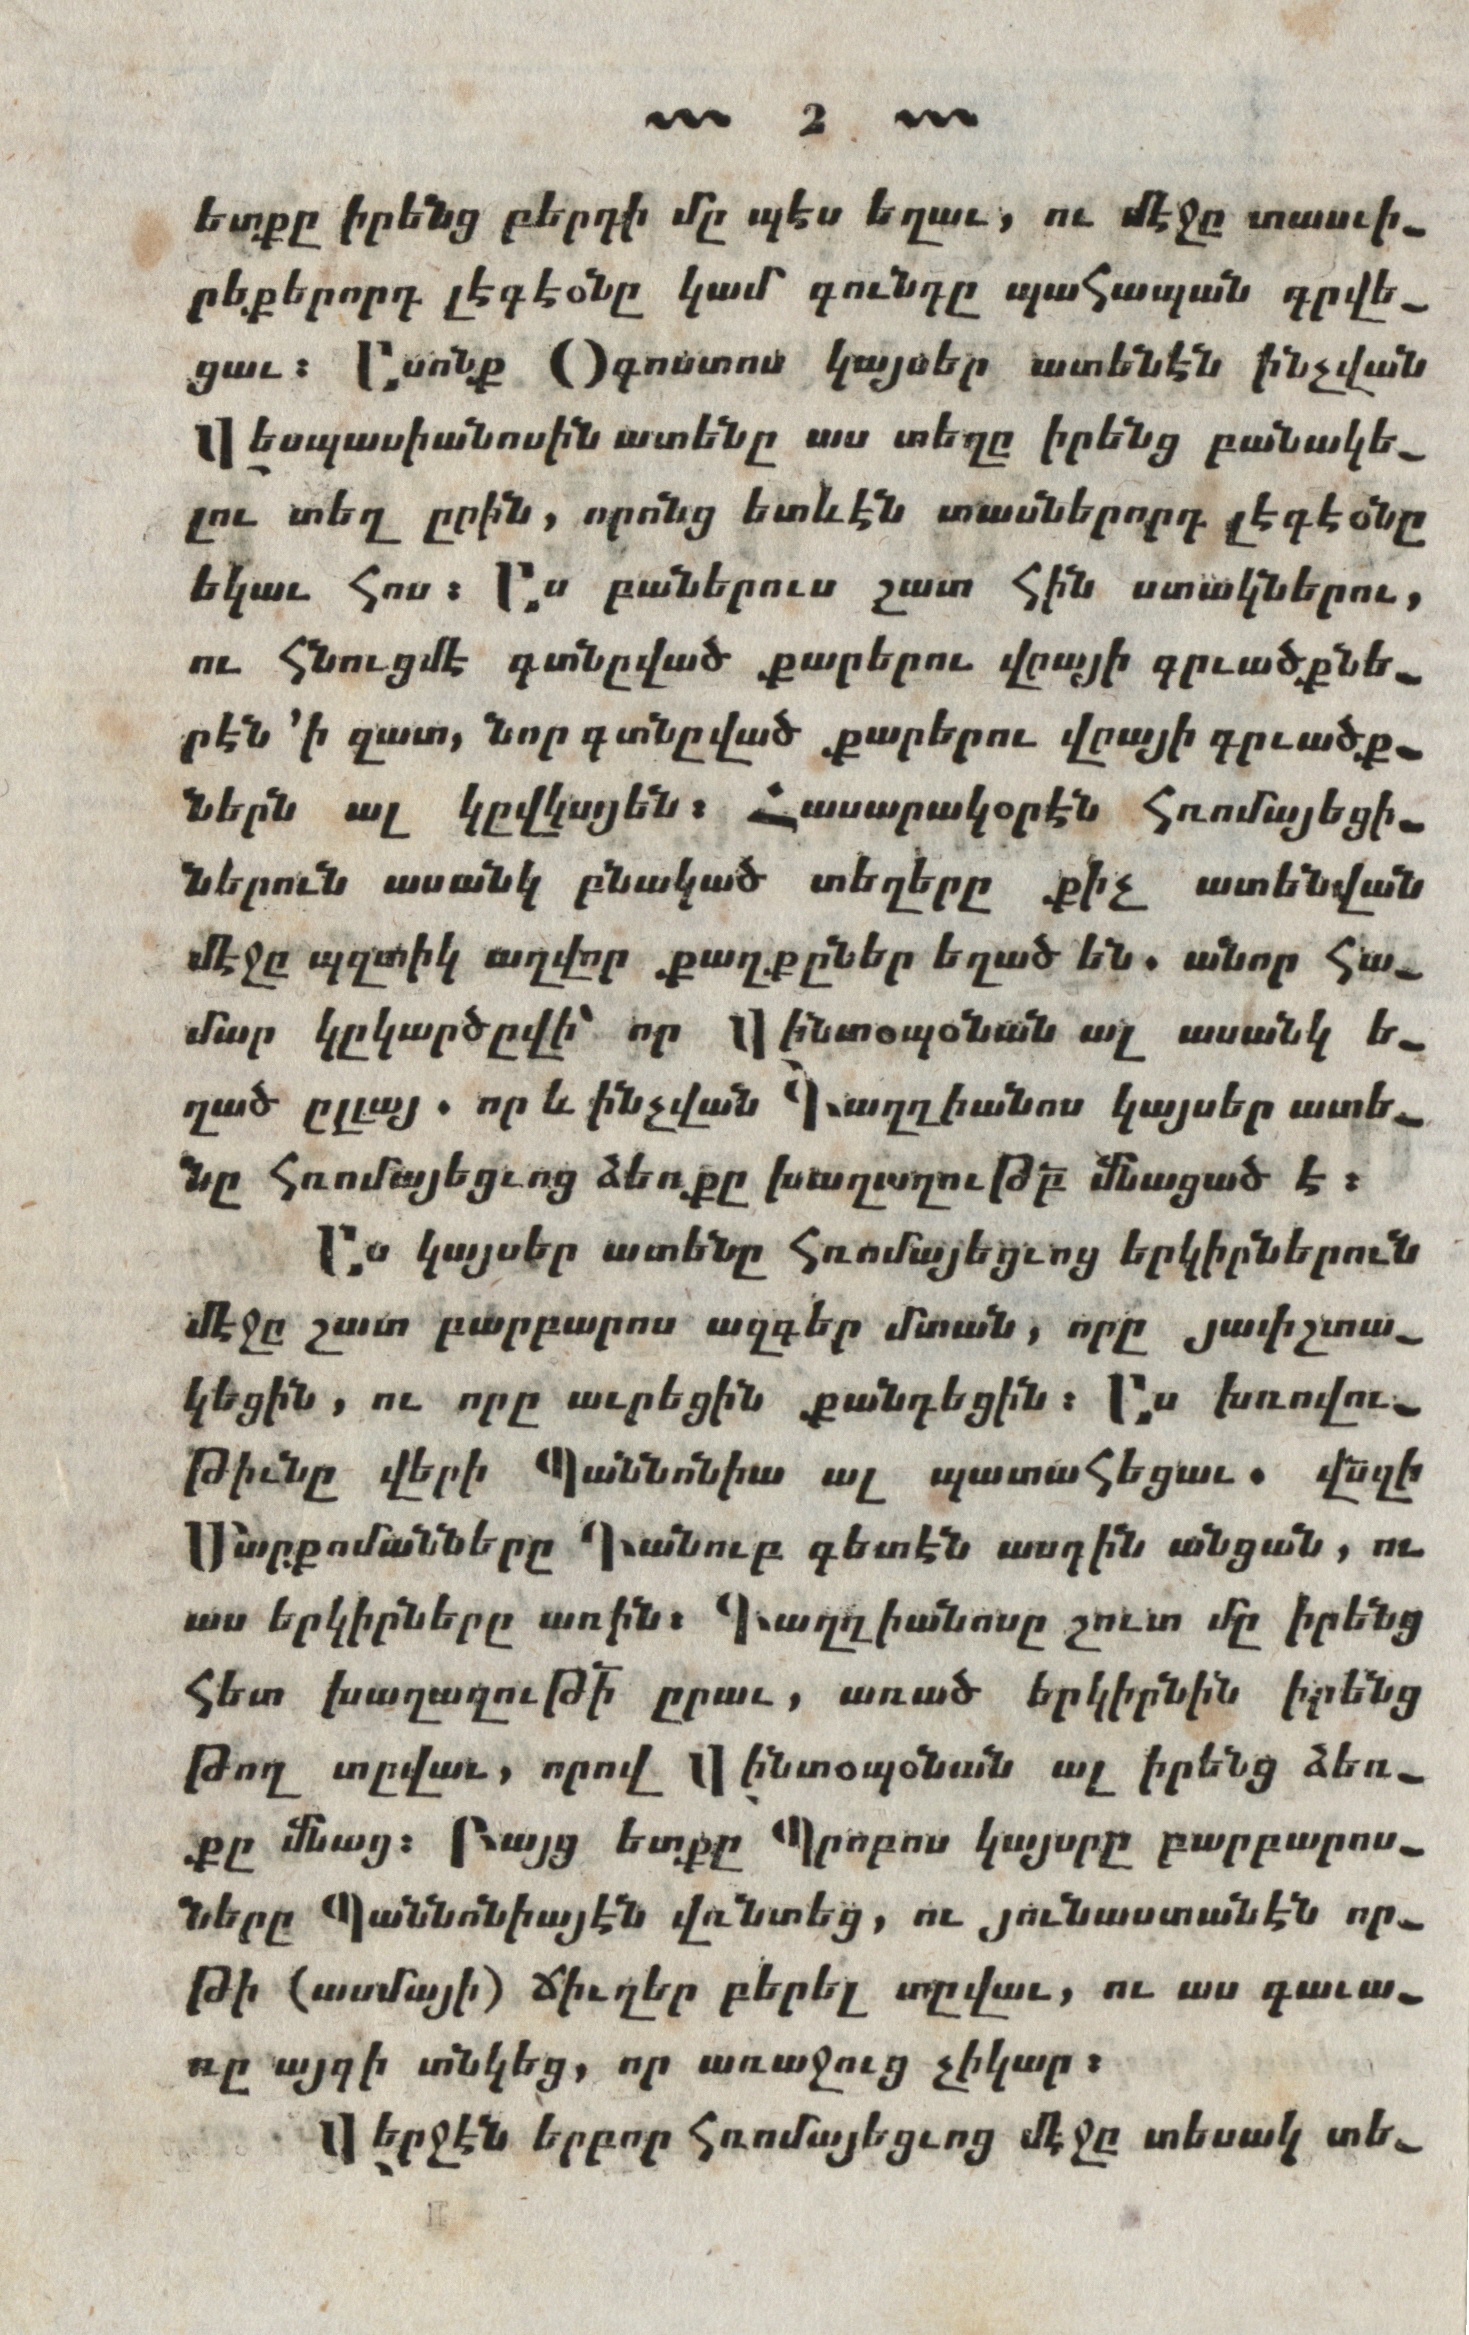 2
ետքը իրենց բերդի մը պէս եղաւ, ու մէջը տասւի֊
րեքերորդ լէգէօնը կամ գունդը պահապան դրվե֊
ցաւ։ Ըսոնք Օգոստոս կայսեր ատենէն ինչվան
Վեսպասիանոսին ատենը աս տեղը իրենց բանակե֊
լու տեղ ըրին, որոնց ետևէն տասներորդ լէգէօնը
եկաւ հոս։ Ըս բաներուս շատ հին ստակներու,
ու հնուցմէ գտնըված քարերու վրայի գրւածքնե֊
րէն ՚ի զատ, նոր գտնըված քարերու վրայի գրւածք֊
ներն ալ կըվկայեն։ Հասարակօրէն հռոմայեցի֊
ներուն ասանկ բնակած տեղերը քիչ ատենվան
մէջը պզտիկ աղվոր քաղքըներ եղած են. անոր հա֊
մար կըկարծըվի՝ որ Վինտօպօնան ալ ասանկ ե֊
ղած ըլլայ. որ և ինչվան Գաղղիանոս կայսեր ատե֊
նը հռոմայեցւոց ձեռքը խաղաղութբ մնացած է։
Ըս կայսեր ատենը հռոմայեցւոց երկիրներուն
մէջը շատ բարբարոս ազգեր մտան, որը յափշտա֊
կեցին, ու որը աւրեցին քանդեցին։ Ըս խռովու֊
թիւնը վերի Պաննոնիա ալ պատահեցաւ. վնզի
Մարքոմանները Դանուբ գետէն ասդին անցան, ու
աս երկիրները առին։ Գաղղիանոսը շուտ մը իրենց
հետ խաղաղութի ըրաւ, առած երկիրնին իրենց
թող տըվաւ, որով Վինտօպօնան ալ իրենց ձեռ֊
քը մնաց։ Բայց ետքը Պրոբոս կայսրը բարբարոս֊
ները Պաննոնիայէն վռնտեց, ու յունաստանէն որ֊
թի (ասմայի) ճիւղեր բերել տըվաւ, ու աս գաւա֊
ռը այգի տնկեց, որ առաջուց չիկար։
Վերջէն երբոր հռոմայեցւոց մէջը տեսակ տե֊